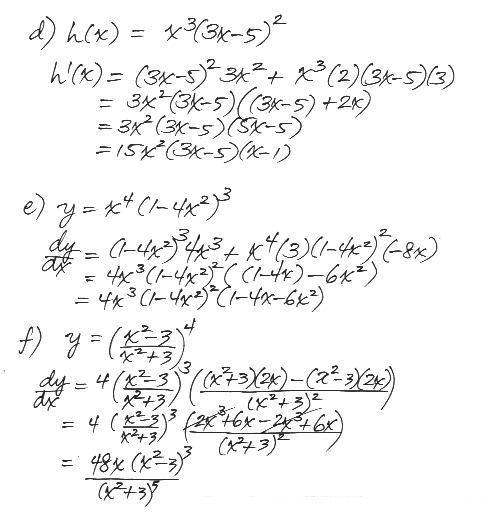 d) h(x) = x³(3x-5)²
h'(x) = (3x-5)² 3x² + x³(2)(3x-5)(3)
= 3x²(3x-5)((3x-5)+2x)
= 3x²(3x-5)(5x-5)
= 15x²(3x-5)(x-1)
e) y = x⁴(1-4x²)³
dy/dx = (1-4x²)³4x³ + x⁴(3)(1-4x²)²(-8x)
= 4x³(1-4x²)²((1-4x)-6x²)
= 4x³(1-4x²)²(1-4x-6x²)
f) y = ((x²-3)/(x²+3))⁴
dy/dx = 4((x²-3)/(x²+3))³(((x²+3)(2x)-(x²-3)(2x))/(x²+3)²)
= 4((x²-3)/(x²+3))³((2x³+6x-2x³+6x)/(x²+3)²)
= 48x(x²-3)³/(x²+3)⁵